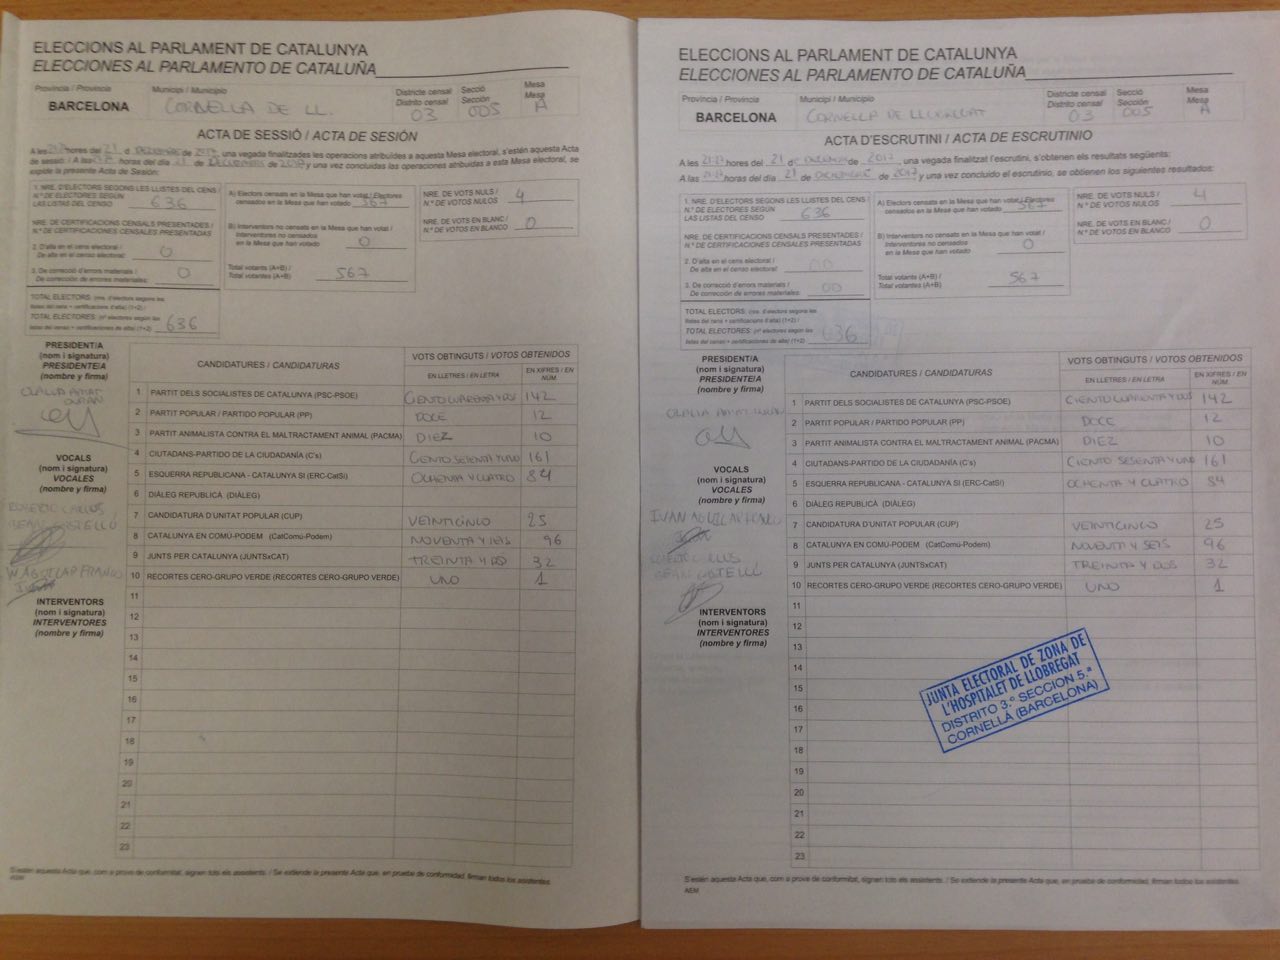 ELECCIONS AL PARLAMENT DE CATALUNYA
ELECCIONES AL PARLAMENTO DE CATALUÑA
Província / Provincia
Municipi / Municipio
Districte censal
Distrito censal
Secció
Sección
Mesa
Mesa
BARCELONA
CORNELLA DE LL.
03
005
A
ACTA DE SESSIÓ / ACTA DE SESIÓN
A les hores del 21 d de 2017, una vegada finalitzades les operacions atribuïdes a aquesta Mesa electoral, s'estén aquesta Acta
de sessió: / A las horas del día 21 de DICIEMBRE de 2017 y una vez concluidas las operaciones atribuidas a esta Mesa electoral, se
expide la presente Acta de Sesión:
1. NRE. D'ELECTORS SEGONS LES LLISTES DEL CENS /
N.º DE ELECTORES SEGÚN
LAS LISTAS DEL CENSO 636
NRE. DE CERTIFICACIONS CENSALS PRESENTADES /
N.º DE CERTIFICACIONES CENSALES PRESENTADAS
2. D'alta en el cens electoral /
De alta en el censo electoral: 0
3. De correcció d'errors materials /
De corrección de errores materiales: 0
TOTAL ELECTORS: (nre. d'electors segons les
llistes del cens + certificacions d'alta) (1+2) /
TOTAL ELECTORES: (nº electores según las
listas del censo + certificaciones de alta) (1+2) 636
A) Electors censats en la Mesa que han votat / Electores
censados en la Mesa que han votado 567
B) Interventors no censats en la Mesa que han votat /
Interventores no censados
en la Mesa que han votado 0
Total votants (A+B) /
Total votantes (A+B) 567
NRE. DE VOTS NULS /
N.º DE VOTOS NULOS 4
NRE. DE VOTS EN BLANC /
N.º DE VOTOS EN BLANCO 0
PRESIDENT/A
(nom i signatura)
PRESIDENTE/A
(nombre y firma)
VOCALS
(nom i signatura)
VOCALES
(nombre y firma)
INTERVENTORS
(nom i signatura)
INTERVENTORES
(nombre y firma)
CANDIDATURES / CANDIDATURAS
VOTS OBTINGUTS / VOTOS OBTENIDOS
EN LLETRES / EN LETRA
EN XIFRES / EN NÚM.
1 PARTIT DELS SOCIALISTES DE CATALUNYA (PSC-PSOE) CIENTO CUARENTA Y DOS 142
2 PARTIT POPULAR / PARTIDO POPULAR (PP) DOCE 12
3 PARTIT ANIMALISTA CONTRA EL MALTRACTAMENT ANIMAL (PACMA) DIEZ 10
4 CIUTADANS-PARTIDO DE LA CIUDADANÍA (C's) CIENTO SESENTA Y UNO 161
5 ESQUERRA REPUBLICANA - CATALUNYA SI (ERC-CatSí) OCHENTA Y CUATRO 84
6 DIÀLEG REPUBLICÀ (DIÀLEG)
7 CANDIDATURA D'UNITAT POPULAR (CUP) VEINTICINCO 25
8 CATALUNYA EN COMÚ-PODEM (CatComú-Podem) NOVENTA Y SEIS 96
9 JUNTS PER CATALUNYA (JUNTSxCAT) TREINTA Y DOS 32
10 RECORTES CERO-GRUPO VERDE (RECORTES CERO-GRUPO VERDE) UNO 1
11
12
13
14
15
16
17
18
19
20
21
22
23
S'estén aquesta Acta que, com a prova de conformitat, signen tots els assistents. / Se extiende la presente Acta que, en prueba de conformidad, firman todos los asistentes
AEM
ELECCIONS AL PARLAMENT DE CATALUNYA
ELECCIONES AL PARLAMENTO DE CATALUÑA
Província / Provincia
Municipi / Municipio
Districte censal
Distrito censal
Secció
Sección
Mesa
Mesa
BARCELONA
CORNELLA DE LLOBREGAT
03
005
A
ACTA D'ESCRUTINI / ACTA DE ESCRUTINIO
A les hores del 21 d de 2017, una vegada finalitzat l'escrutini, s'obtenen els resultats següents:
A las horas del día 21 de DICIEMBRE de 2017 y una vez concluido el escrutinio, se obtienen los siguientes resultados:
1. NRE. D'ELECTORS SEGONS LES LLISTES DEL CENS
N.º DE ELECTORES SEGÚN
LAS LISTAS DEL CENSO 636
NRE. DE CERTIFICACIONS CENSALS PRESENTADES /
N.º DE CERTIFICACIONES CENSALES PRESENTADAS
2. D'alta en el cens electoral /
De alta en el censo electoral:
3. De correcció d'errors materials /
De corrección de errores materiales: 00
TOTAL ELECTORS: (nre. d'electors segons les
llistes del cens + certificacions d'alta) (1+2) /
TOTAL ELECTORES: (nº electores según las
listas del censo + certificaciones de alta) (1+2) 636
A) Electors censats en la Mesa que han votat / Electores
censados en la Mesa que han votado 567
B) Interventors no censats en la Mesa que han votat /
Interventores no censados
en la Mesa que han votado 0
Total votants (A+B) /
Total votantes (A+B) 567
NRE. DE VOTS NULS /
N.º DE VOTOS NULOS 4
NRE. DE VOTS EN BLANC /
N.º DE VOTOS EN BLANCO 0
PRESIDENT/A
(nom i signatura)
PRESIDENTE/A
(nombre y firma)
VOCALS
(nom i signatura)
VOCALES
(nombre y firma)
INTERVENTORS
(nom i signatura)
INTERVENTORES
(nombre y firma)
CANDIDATURES / CANDIDATURAS
VOTS OBTINGUTS / VOTOS OBTENIDOS
EN LLETRES / EN LETRA
EN XIFRES / EN NÚM.
1 PARTIT DELS SOCIALISTES DE CATALUNYA (PSC-PSOE) CIENTO CUARENTA Y DOS 142
2 PARTIT POPULAR / PARTIDO POPULAR (PP) DOCE 12
3 PARTIT ANIMALISTA CONTRA EL MALTRACTAMENT ANIMAL (PACMA) DIEZ 10
4 CIUTADANS-PARTIDO DE LA CIUDADANÍA (C's) CIENTO SESENTA Y UNO 161
5 ESQUERRA REPUBLICANA - CATALUNYA SI (ERC-CatSí) OCHENTA Y CUATRO 84
6 DIÀLEG REPUBLICÀ (DIÀLEG)
7 CANDIDATURA D'UNITAT POPULAR (CUP) VEINTICINCO 25
8 CATALUNYA EN COMÚ-PODEM (CatComú-Podem) NOVENTA Y SEIS 96
9 JUNTS PER CATALUNYA (JUNTSxCAT) TREINTA Y DOS 32
10 RECORTES CERO-GRUPO VERDE (RECORTES CERO-GRUPO VERDE) UNO 1
11
12
13
14
15
16
17
18
19
20
21
22
23
JUNTA ELECTORAL DE ZONA DE
L'HOSPITALET DE LLOBREGAT
DISTRITO 3.º SECCION 5.ª
CORNELLÀ (BARCELONA)
S'estén aquesta Acta que, com a prova de conformitat, signen tots els assistents. / Se extiende la presente Acta que, en prueba de conformidad, firman todos los asistentes.
AEM